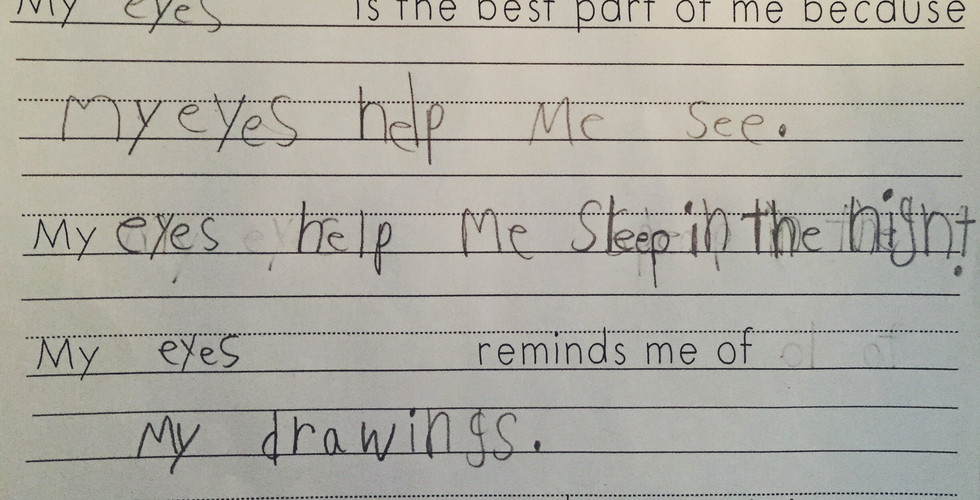 My eyes is the best part of me because
My eyes help Me see.
My eyes help Me Sleep in the night.
My eyes reminds me of
My drawings.